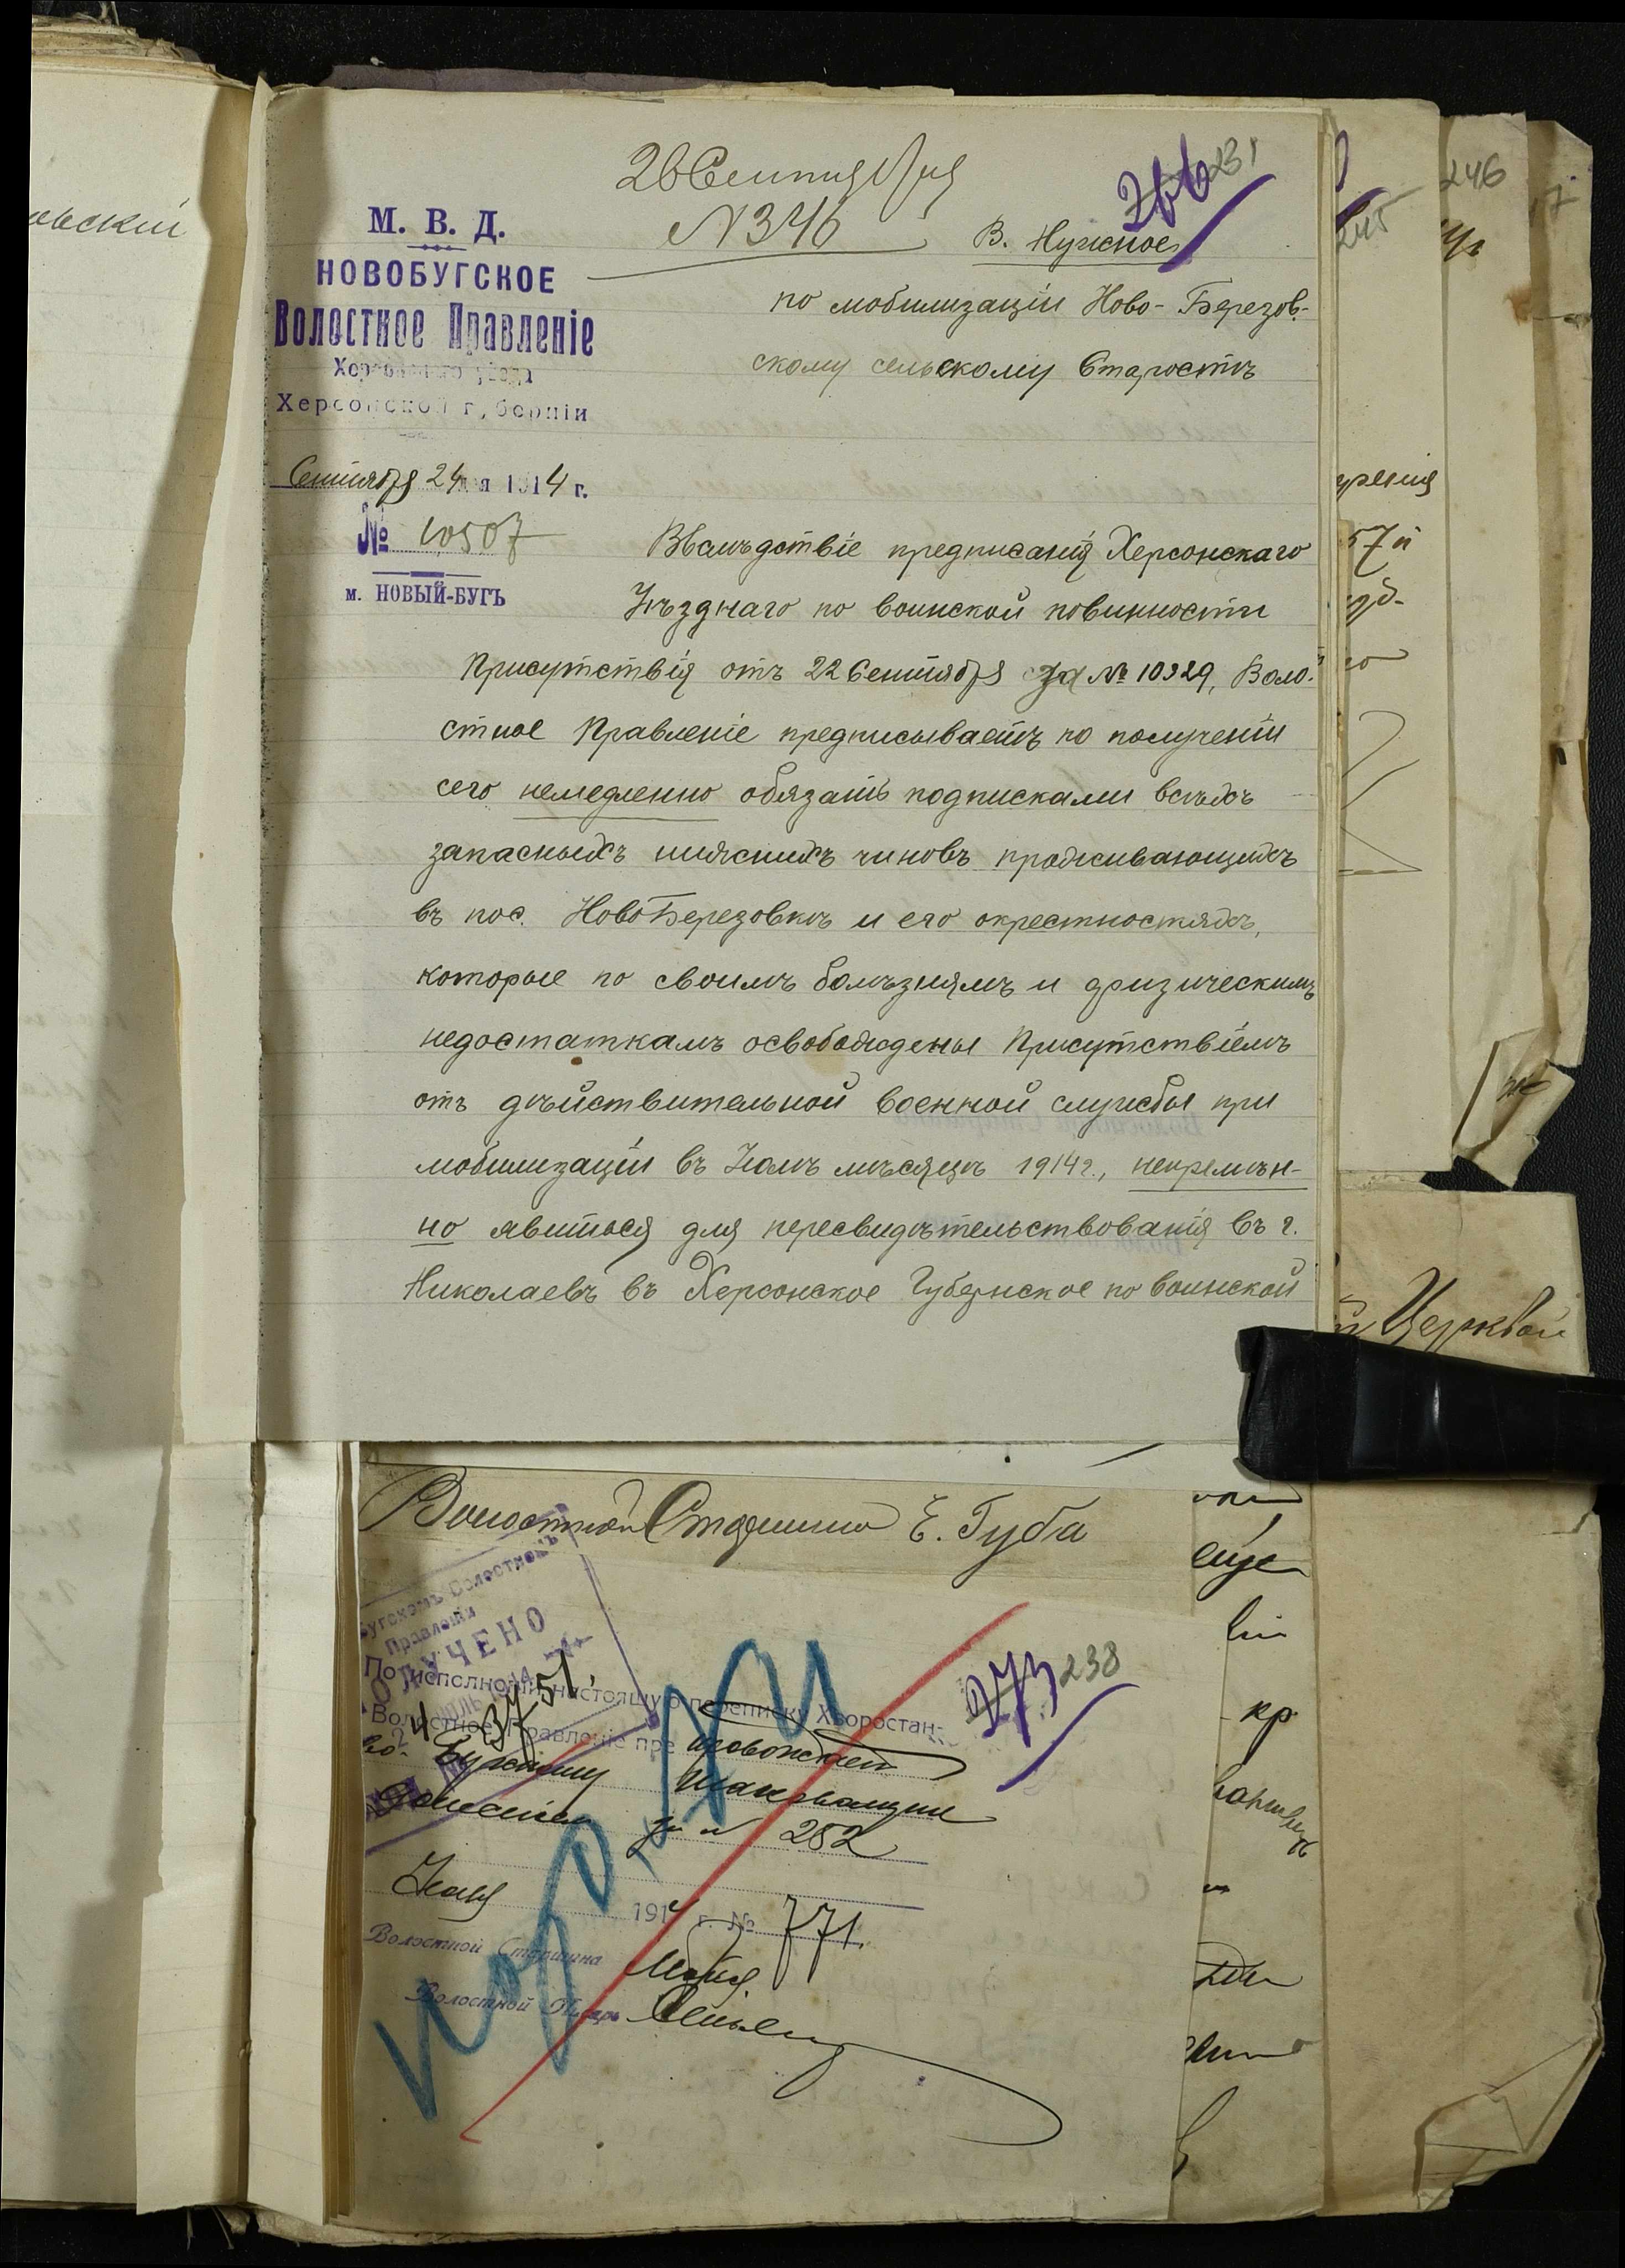 26 Сентября
№ 346
266 231
М. В. Д.
НОВОБУГСКОЕ
Волостное Правленіе
Херсонскаго уѣзда
Херсонской губерніи
Сентября 24 дня 1914 г.
№ 10507
м. НОВЫЙ-БУГЪ
В. Нужное
по мобилизаціи Ново-Березов-
скому сельскому Старостѣ
Вслѣдствіе предписанія Херсонскаго
Уѣзднаго по воинской повинности
Присутствія отъ 22 Сентября за № 10329, Воло-
стное Правленіе предписываетъ по полученіи
сего немедленно обязать подписками всѣхъ
запасныхъ нижнихъ чиновъ проживающихъ
въ пос. НовоБерезовкѣ и его окрестностяхъ,
которые по своимъ болѣзнямъ и физическимъ
недостаткамъ освобождены Присутствіемъ
отъ дѣйствительной военной службы при
мобилизаціи въ Іюлѣ мѣсяцѣ 1914 г., непремѣн-
но явиться для пересвидѣтельствованія въ г.
Николаевъ въ Херсонское Губернское по воинской
Волостной Старшина Е. Губа
Бугскомъ Волостномъ
Правленіи
ПОЛУЧЕНО
3751
По исполненіи настоящую переписку Хворостан-
Волостное Правленіе препровождает
Бугскому
за № 252
1914 г. № 771.
Волостной Старшина
Волостной Писарь
273 238
льскій
246
245
57й
Церквей